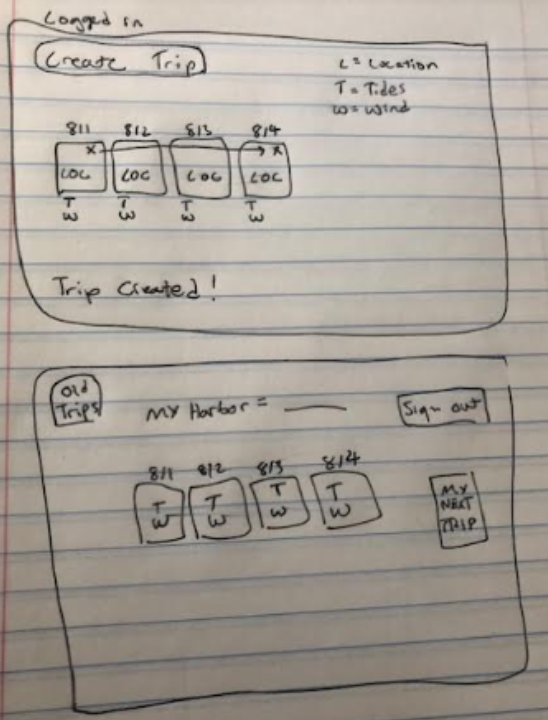 Logged in
Create Trip
L = Location
T = Tides
W = Wind
8/1 8/2 8/3 8/4
x x
LOC LOC LOC LOC
T T T T
W W W W
Trip Created!
Old
Trips
My Harbor = ____
Sign out
8/1 8/2 8/3 8/4
T T T T
W W W W
MY
NEXT
TRIP